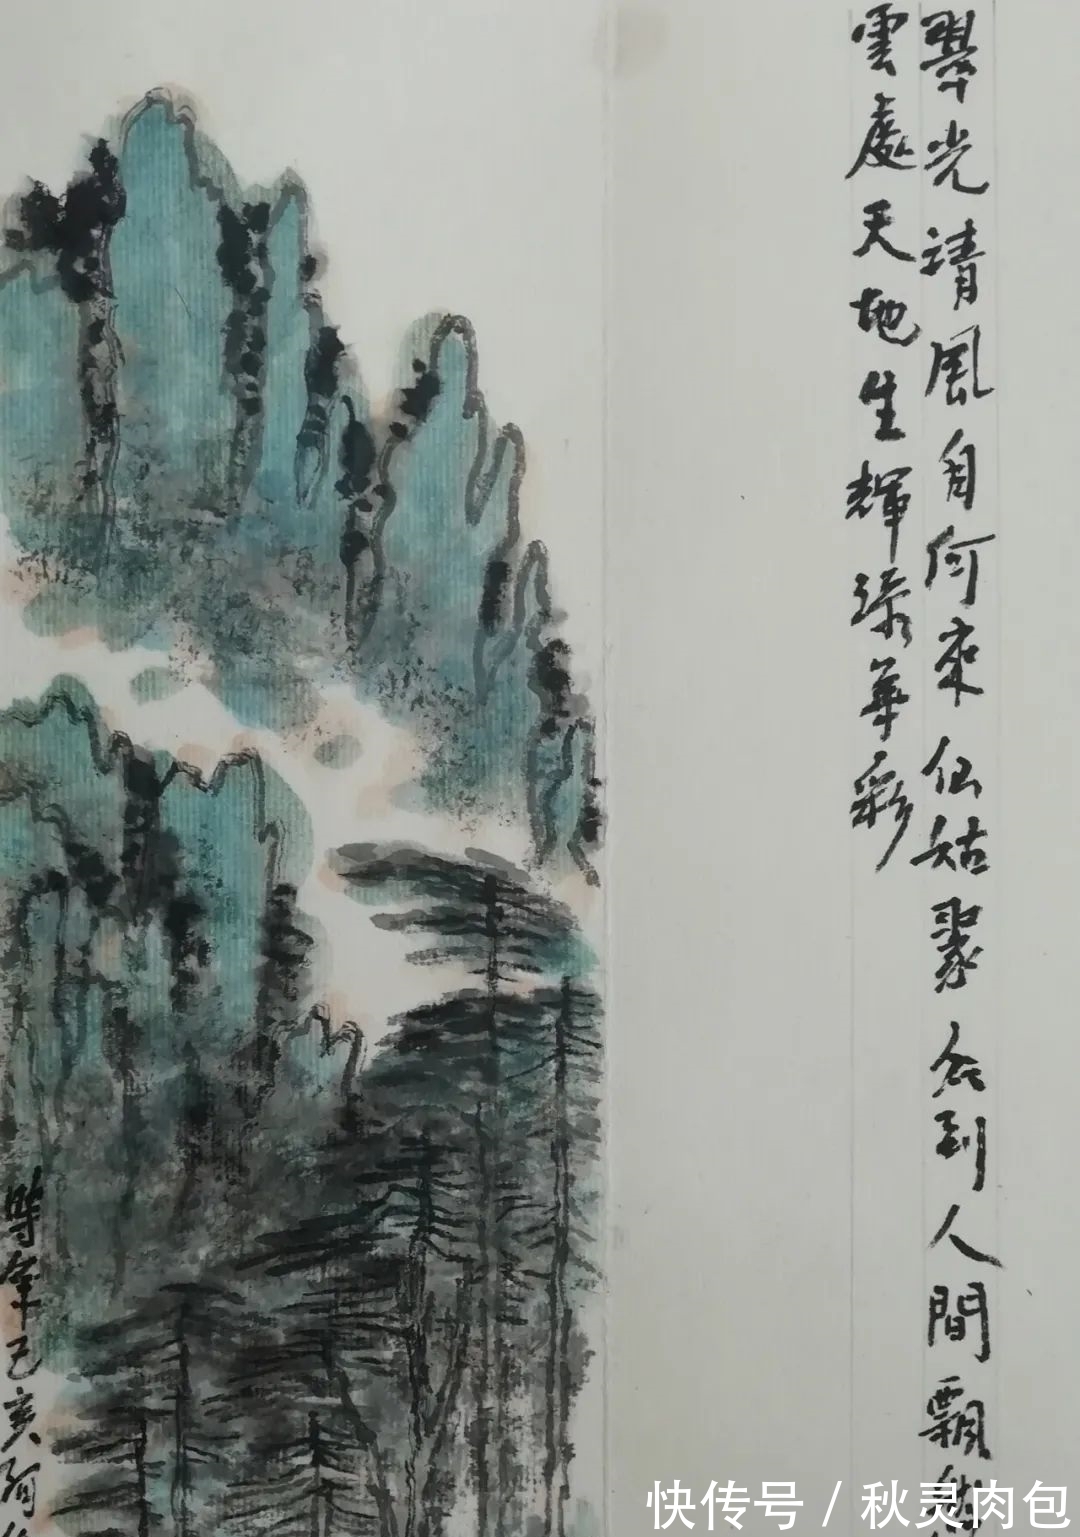 翠光清風自何來仙姑眾衆到人間飄
雲處天地生輝添華彩
時年己亥
快传号 / 秋灵肉包